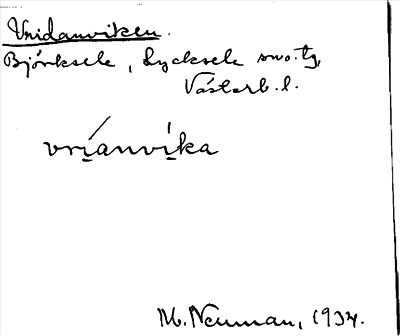 Vridanviken.
Björksele, Lycksele sn o. tg,
Västerb. l.
vríanvíka
M. Neuman, 1934.